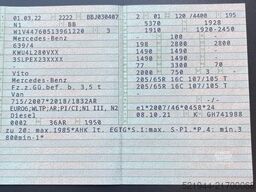 01.03.22 2222 BBJ030407
N1 BB
W1V44760513961220 3
Mercedes-Benz
639/4
KWU4L280VXX
3SLPEX23XXXX
Vito
Mercedes-Benz
Fz.z.GG.bef. b. 3,5 t
Van
715/2007*2018/1832AR
EURO6;WLTP;AR;PI/CI; N1 III, N2
Diesel
0002 36AR 1950
2 01 120 /4400 195
5370 1928
1910 1920-2450
198 2800
1490
2800 2800
77
3300
205/65R 16C 107/105 T
205/65R 16C 107/105 T
e1*2007/46*0458*24
08.10.21 K GH741988
zu 20: max.1985*AHK lt. EGTG*S.1: max. S-Pl. *P.4: min.3
800min-1*